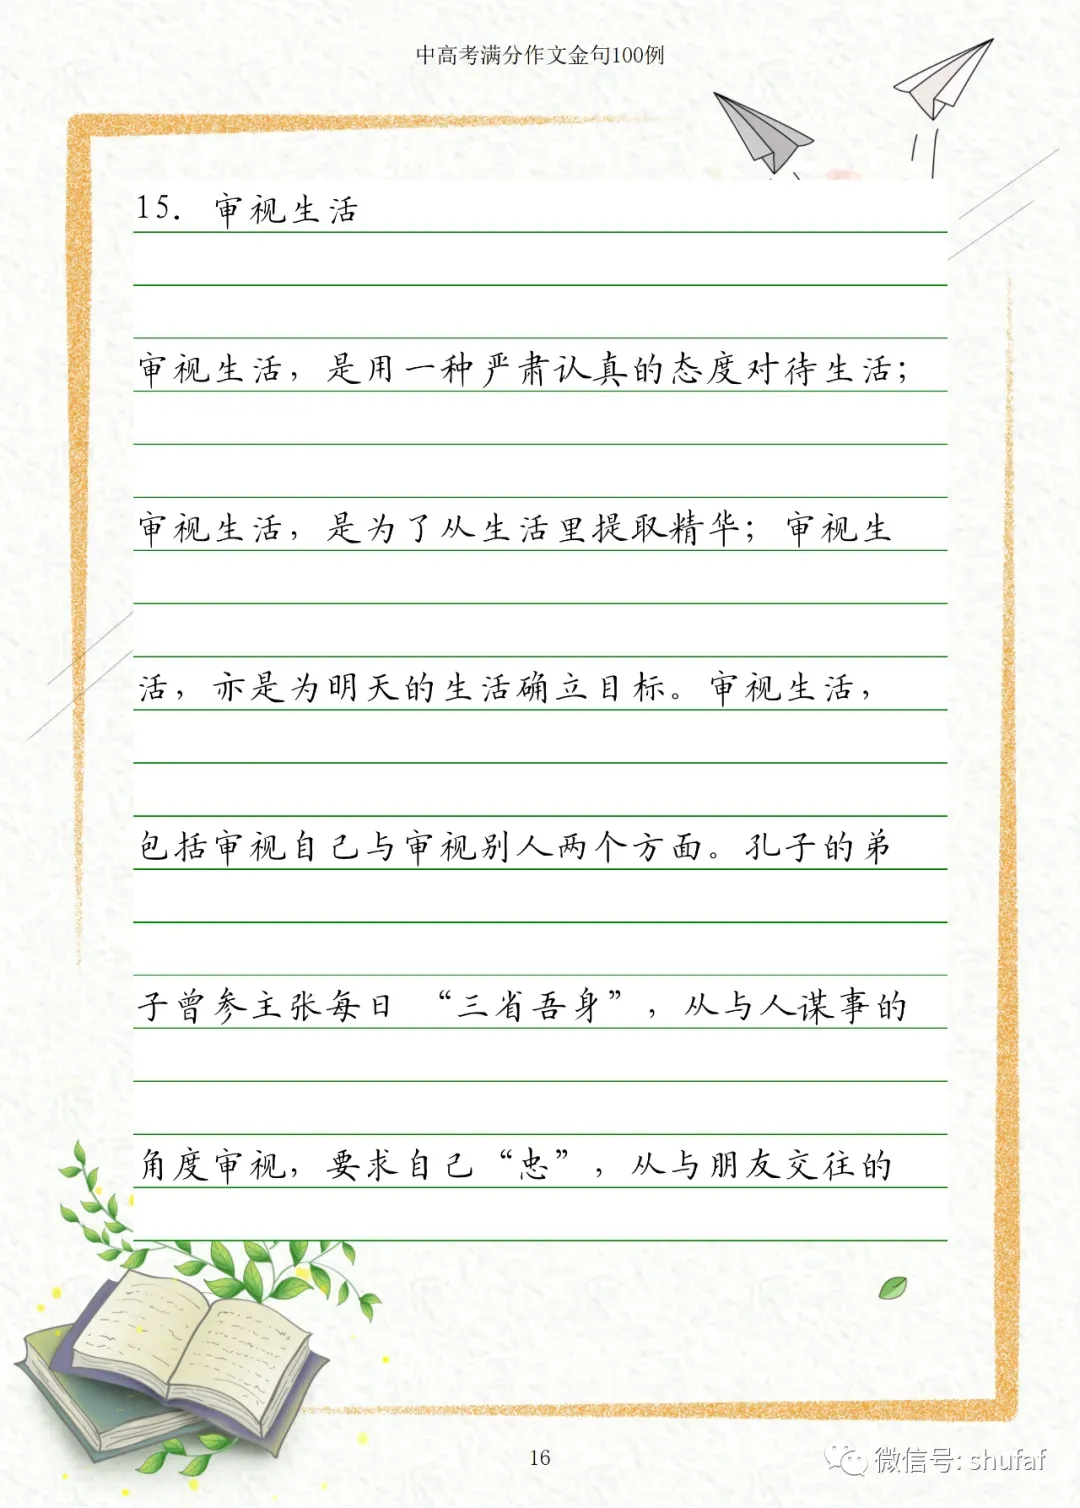 中高考满分作文金句100例
15. 审视生活
审视生活，是用一种严肃认真的态度对待生活；
审视生活，是为了从生活里提取精华；审视生
活，亦是为明天的生活确立目标。审视生活，
包括审视自己与审视别人两个方面。孔子的弟
子曾参主张每日 “三省吾身”，从与人谋事的
角度审视，要求自己“忠”，从与朋友交往的
16
微信号: shufaf